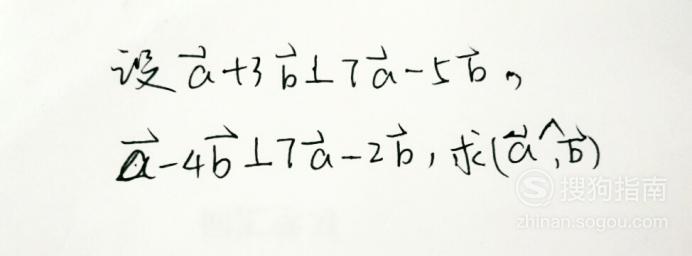 设 a⃗+3b⃗⊥7a⃗-5b⃗,
a⃗-4b⃗⊥7a⃗-2b⃗, 求(a⃗^,b⃗)
S 搜狗指南
zhinan.sogou.com